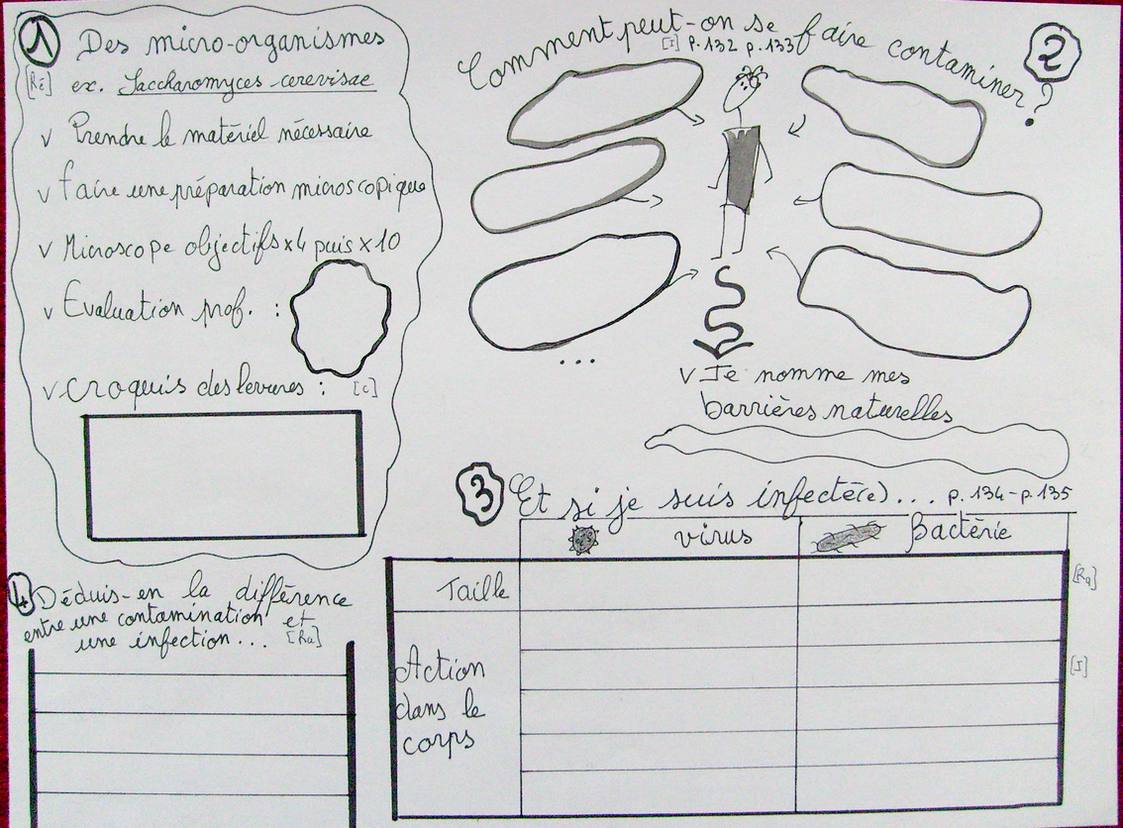 1 Des micro-organismes
[Ré] ex. Saccharomyces cerevisae
v Prendre le matériel nécessaire
v faire une préparation microscopique
v Microscope objectifs x4 puis x10
v Evaluation prof. :
v croquis des levures : [C]
2
Comment peut-on se faire contaminer ?
[I] p.132 p.133
...
v Je nomme mes
barrières naturelles
3 Et si je suis infecté(e)... p.134-p.135
virus Bactérie
Taille [Ra]
Action [I]
dans le
corps
4 Déduis-en la différence
entre une contamination et
une infection... [Ra]